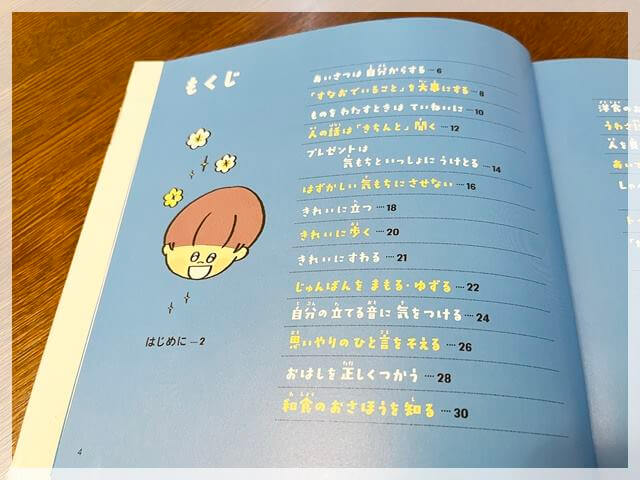 もくじ
はじめに ― 2
あいさつは 自分からする ― 6
「すなおでいること」を大事にする ― 8
ものを わたすときは ていねいに ― 10
人の話は「きちんと」聞く ···· 12
プレゼントは
気もちと いっしょに うけとる ···· 14
はずかしい 気もちに させない ···· 16
きれいに 立つ ···· 18
きれいに 歩く ···· 20
きれいに すわる ···· 21
じゅんばんを まもる・ゆずる ···· 22
自分の 立てる音に 気をつける ···· 24
思いやりの ひと言を そえる ···· 26
おはしを 正しく つかう ···· 28
和食の おさほうを 知る ···· 30
4
洋食の